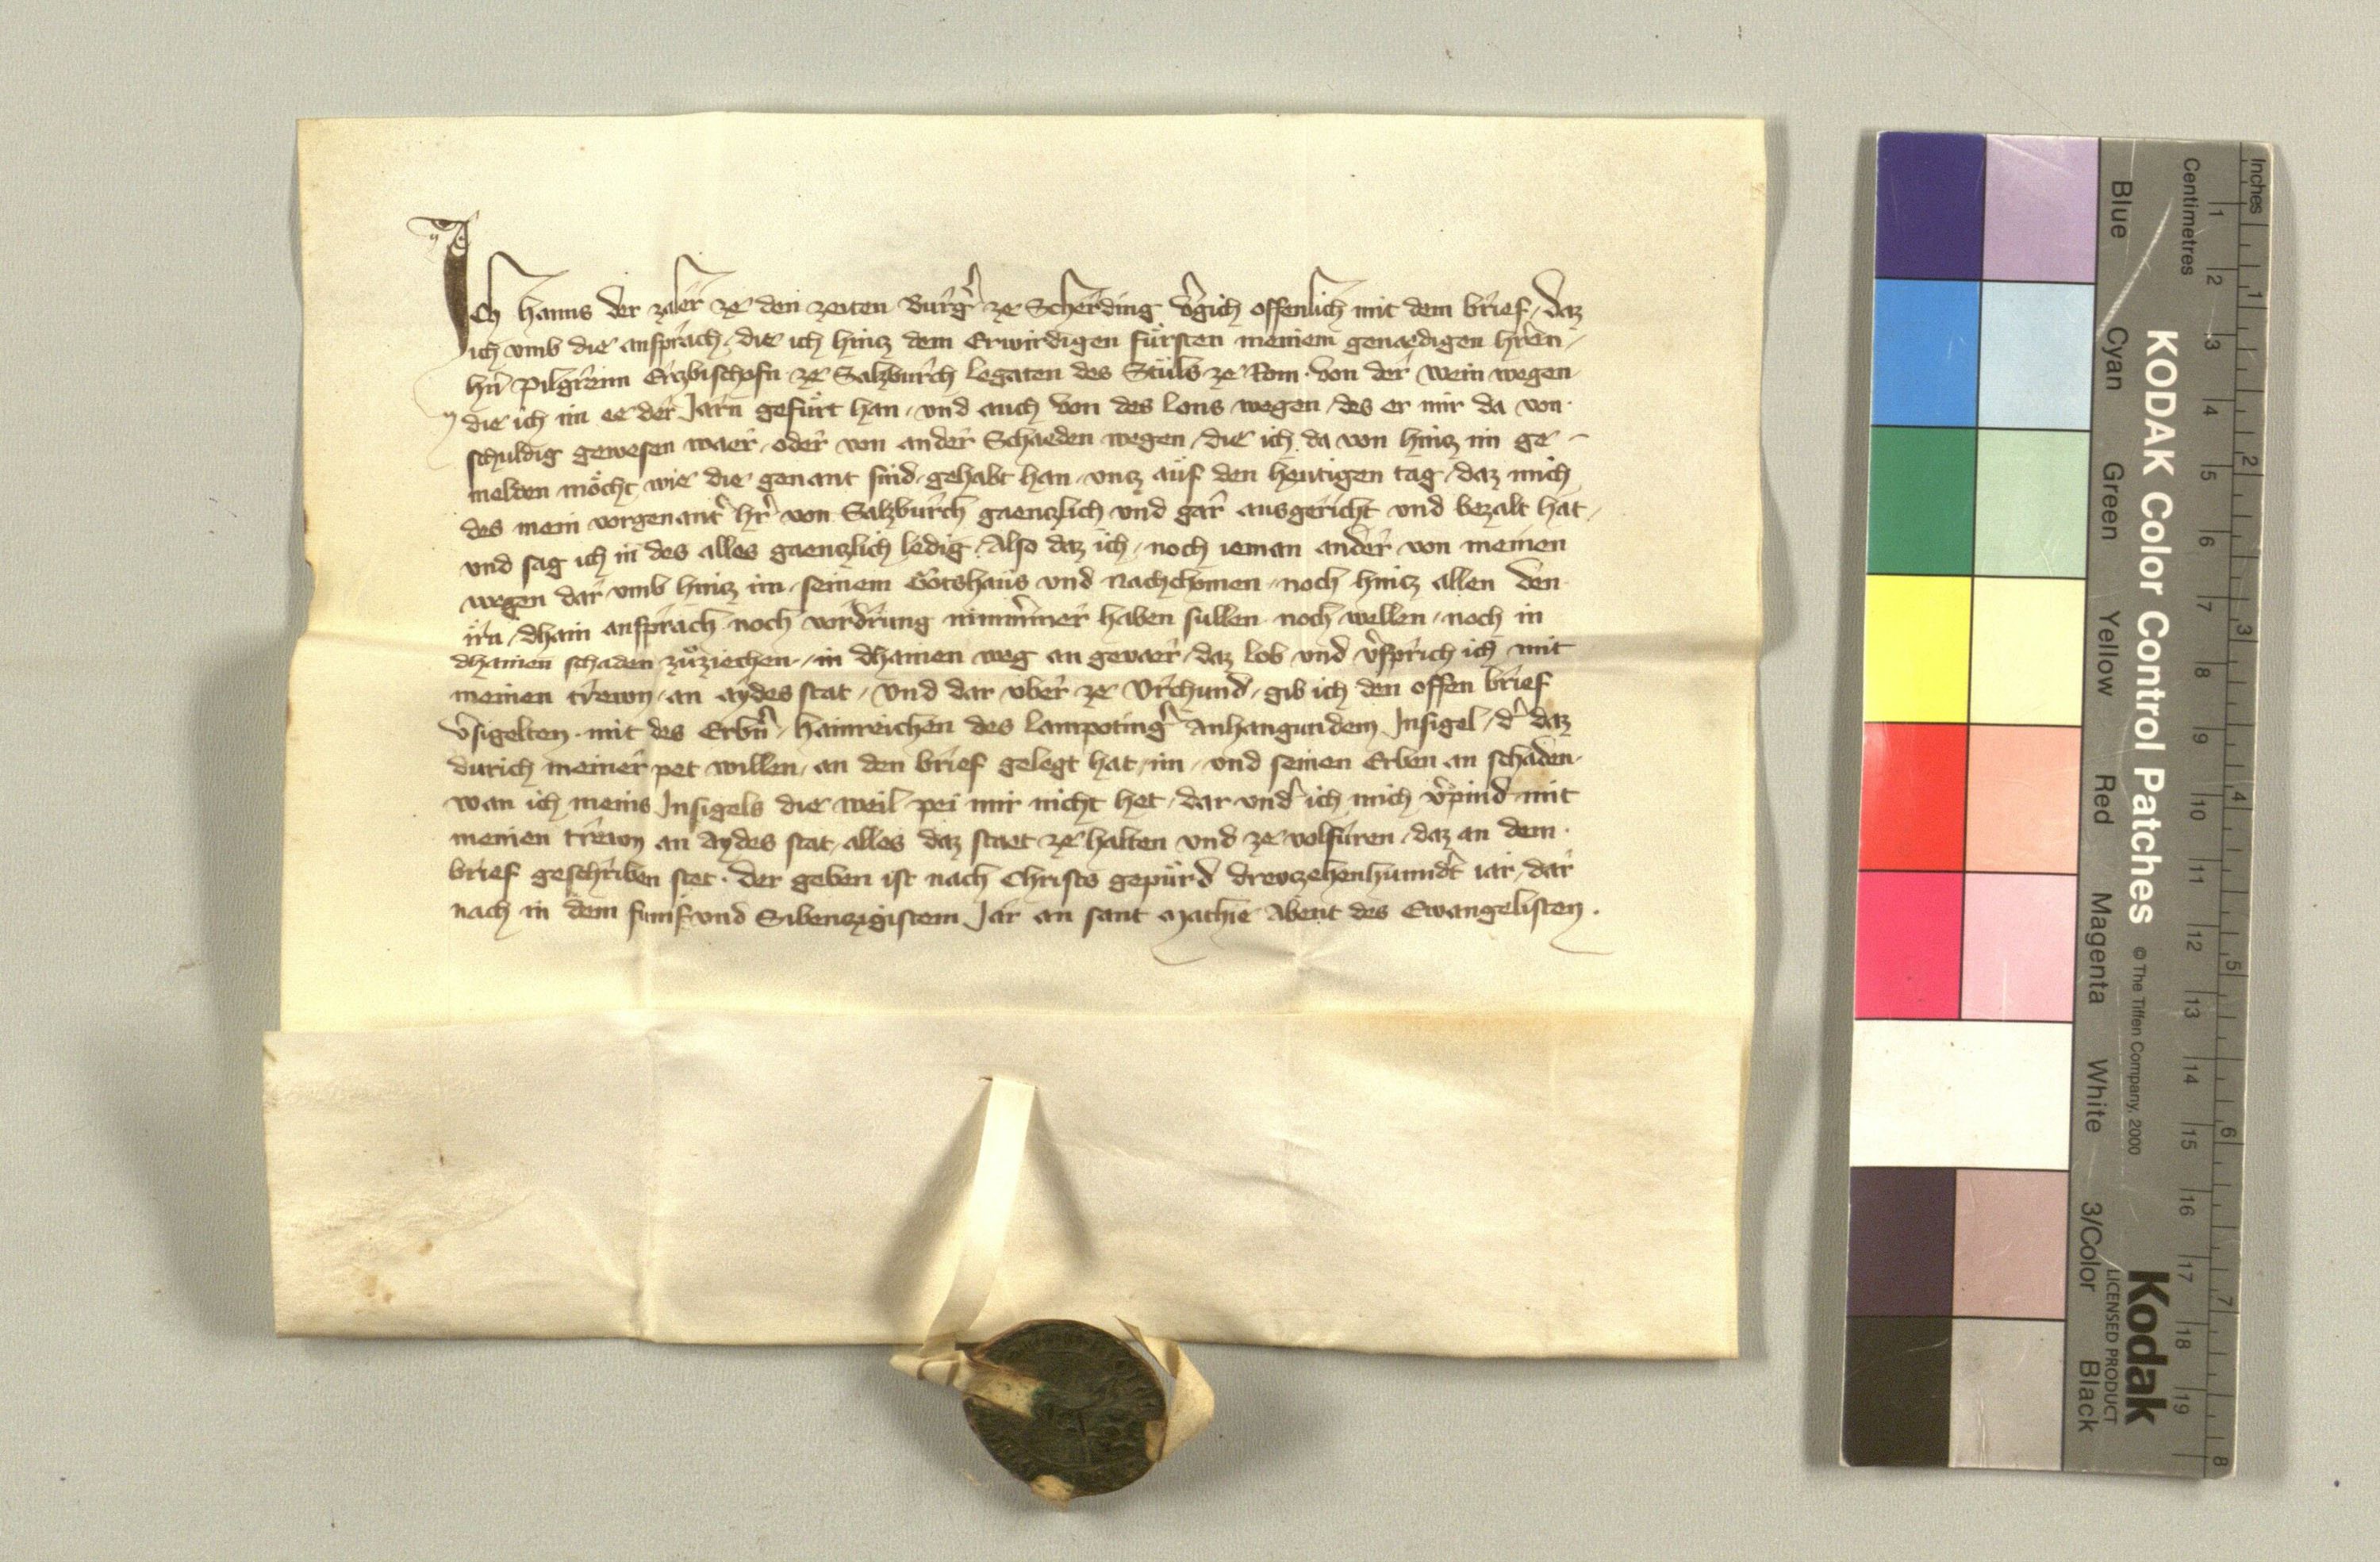 Ich Hanns der zaler ze den zeiten Burg̕ ze Scherding v̕gich offenlich mit dem brief / daz
ich vmb die ansprach / die ich hincz dem Erwirdigen fürsten meinem genaedigen hr̕en /
hn̕ Pilgreim Erczbischofn ze Salzburch legaten des Stůls ze Rom · von der wein wegen
die ich im ee der Jarn gefürt han / vnd auch von des lons wegen / des er mir da von ·
schuldig gewesen waer / oder von ander Schaeden wegen / die ich da von hincz im ge -
melden möcht / wie die genant sind / gehabt han / vncz auf den heutigen tag / daz mich
des mein vorgenant̕ hr̕ von Salzburch gaenczlich vnd gar ausgericht vnd bezalt hat /
vnd sag ich in des alles gaenczlich ledig / Also daz ich / noch ieman ander von meinen
wegen dar vmb hincz im / seinem Gotshaus vnd nachchomen / noch hincz allen den
irn / dhain ansprach noch vordrung nimm̕mer haben sullen noch wellen / noch in
dhainen schaden zůziechen / in dhainen weg an gevaer / daz lob vnd v̕sprich ich mit
meinen trewn / an aydes stat / Vnd dar vber ze Vrchund / gib ich den offen brief
v̕sigelten · mit des Erbn̕ / Hainreichen des lampoting̕ Anhangundem Insigel / d̕ daz
durich meiner pet willen / an den brief gelegt hat / im / vnd seinen Erben an schaden ·
wan ich meins Insigels die weil pei mir nicht het / dar vnd̕ ich mich v̕pind mit
meinen trewn an Aydes stat / alles daz staet ze halten vnd ze volfüren / daz an dem ·
brief geschriben stet · der geben ist nach Christs gepürd drewczehenhundt̕ iar / dar
nach in dem fumf vnd Sibenczigistem Jar an sant Mathie Abent des Ewangelisten ·
KODAK Color Control Patches © The Tiffen Company, 2000 Kodak LICENSED PRODUCT
Inches 1 2 3 4 5 6 7 8
Centimetres 1 2 3 4 5 6 7 8 9 10 11 12 13 14 15 16 17 18 19
Blue Cyan Green Yellow Red Magenta White 3/Color Black